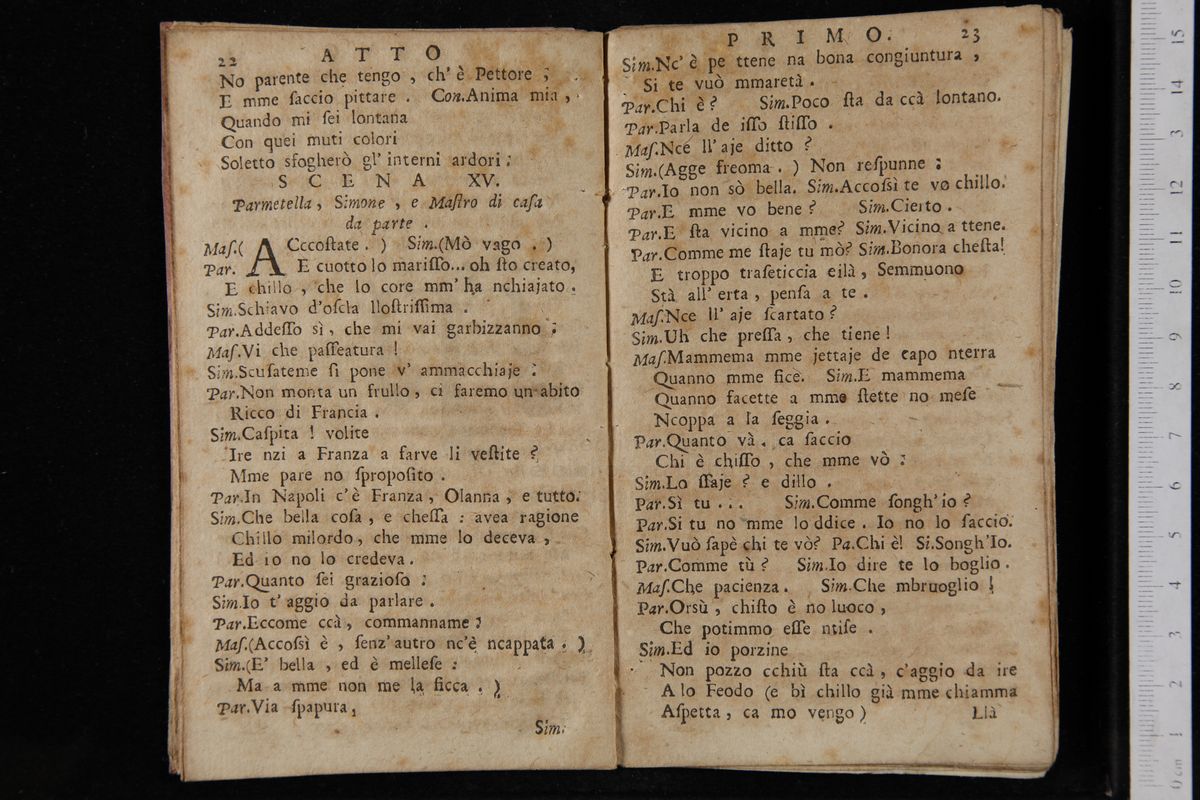 22 ATTO
No parente che tengo , ch' è Pettore ;
E mme ſaccio pittare . Con.Anima mia ,
Quando mi ſei lontana
Con quei muti colori
Soletto sfogherò gl' interni ardori .
SCENA XV.
Parmetella, Simone , e Maſtro di caſa
da parte .
Maſ.( ACccoſtate . ) Sim.(Mò vago . )
Par. E cuotto lo mariſſo... oh ſto creato,
E chillo , che lo core mm' ha nchiajato .
Sim.Schiavo d'oſcla lloſtriſſima .
Par.Addeſſo sì, che mi vai garbizzanno :
Maſ.Vi che paſſeatura !
Sim.Scuſateme ſi pone v' ammacchiaje :
Par.Non monta un frullo, ci faremo un abito
Ricco di Francia .
Sim.Caſpita ! volite
Ire nzi a Franza a farve li veſtite ?
Mme pare no ſpropoſito .
Par.In Napoli c'è Franza, Olanna, e tutto.
Sim.Che bella coſa, e cheſſa : avea ragione
Chillo milordo, che mme lo deceva ,
Ed io no lo credeva .
Par.Quanto ſei grazioſo :
Sim.Io t' aggio da parlare .
Par.Eccome ccà, commanname :
Maſ.(Accoſsì è , ſenz' autro nc'è ncappata . )
Sim.(E' bella , ed è melleſe :
Ma a mme non me la ficca . )
Par.Via ſpapura,
Sim.
PRIMO. 23
Sim.Nc' è pe ttene na bona congiuntura ,
Si te vuò mmaretà .
Par.Chi è ? Sim.Poco ſta da ccà lontano.
Par.Parla de iſſo ſtiſſo .
Maſ.Nce ll' aje ditto ?
Sim.(Agge freoma . ) Non reſpunne :
Par.Io non sò bella. Sim.Accoſsì te vo chillo.
Par.E mme vo bene ? Sim.Cierto .
Par.E ſta vicino a mme? Sim.Vicino a ttene.
Par.Comme me ſtaje tu mò? Sim.Bonora cheſta!
E troppo traſeticcia eilà, Semmuono
Stà all' erta , penſa a te .
Maſ.Nce ll' aje ſcartato ?
Sim.Uh che preſſa , che tiene !
Maſ.Mammema mme jettaje de capo nterra
Quanno mme fice. Sim.E mammema
Quanno facette a mme ſtette no meſe
Ncoppa a la ſeggia .
Par.Quanto và , ca ſaccio
Chi è chiſſo , che mme vò :
Sim.Lo ſſaje ? e dillo .
Par.Sì tu ... Sim.Comme ſongh' io ?
Par.Si tu no mme lo ddice . Io no lo ſaccio.
Sim.Vuò ſapè chi te vò? Pa.Chi è! Si.Songh'Io.
Par.Comme tù ? Sim.Io dire te lo boglio .
Maſ.Che pacienza . Sim.Che mbruoglio !
Par.Orsù , chiſto è no luoco ,
Che potimmo eſſe ntiſe .
Sim.Ed io porzine
Non pozzo cchiù ſta ccà, c'aggio da ire
A lo Feodo (e bì chillo già mme chiamma
Aſpetta, ca mo vengo) Llà